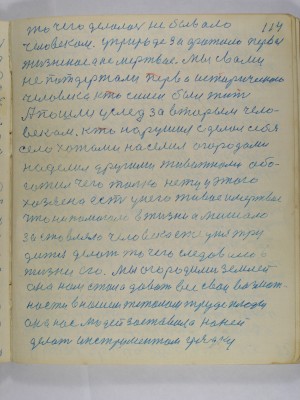 114
то чего делалося не бывало
человеком. У природе за гратило первы
жизненое не мертвое. Мы с вами
не поддержали перваго историческаго
человека кто с ним был жит
А пошли услед за вторым чело-
веком. Кто нарушил сделал себя
село хотами населил огородами
наделил другими животными обо-
гатил чего только нету у этого
хозяена есть у него живое и мертвое
что и помогало в жизни а мешало
заставляло человека
дится делать то чего следовало
жизни его. Мы огородили землею
она нам стала давать все свои возмож-
ности в нашем таком труде плоды
она нас людей заставила на ней
делать инструментом грядку